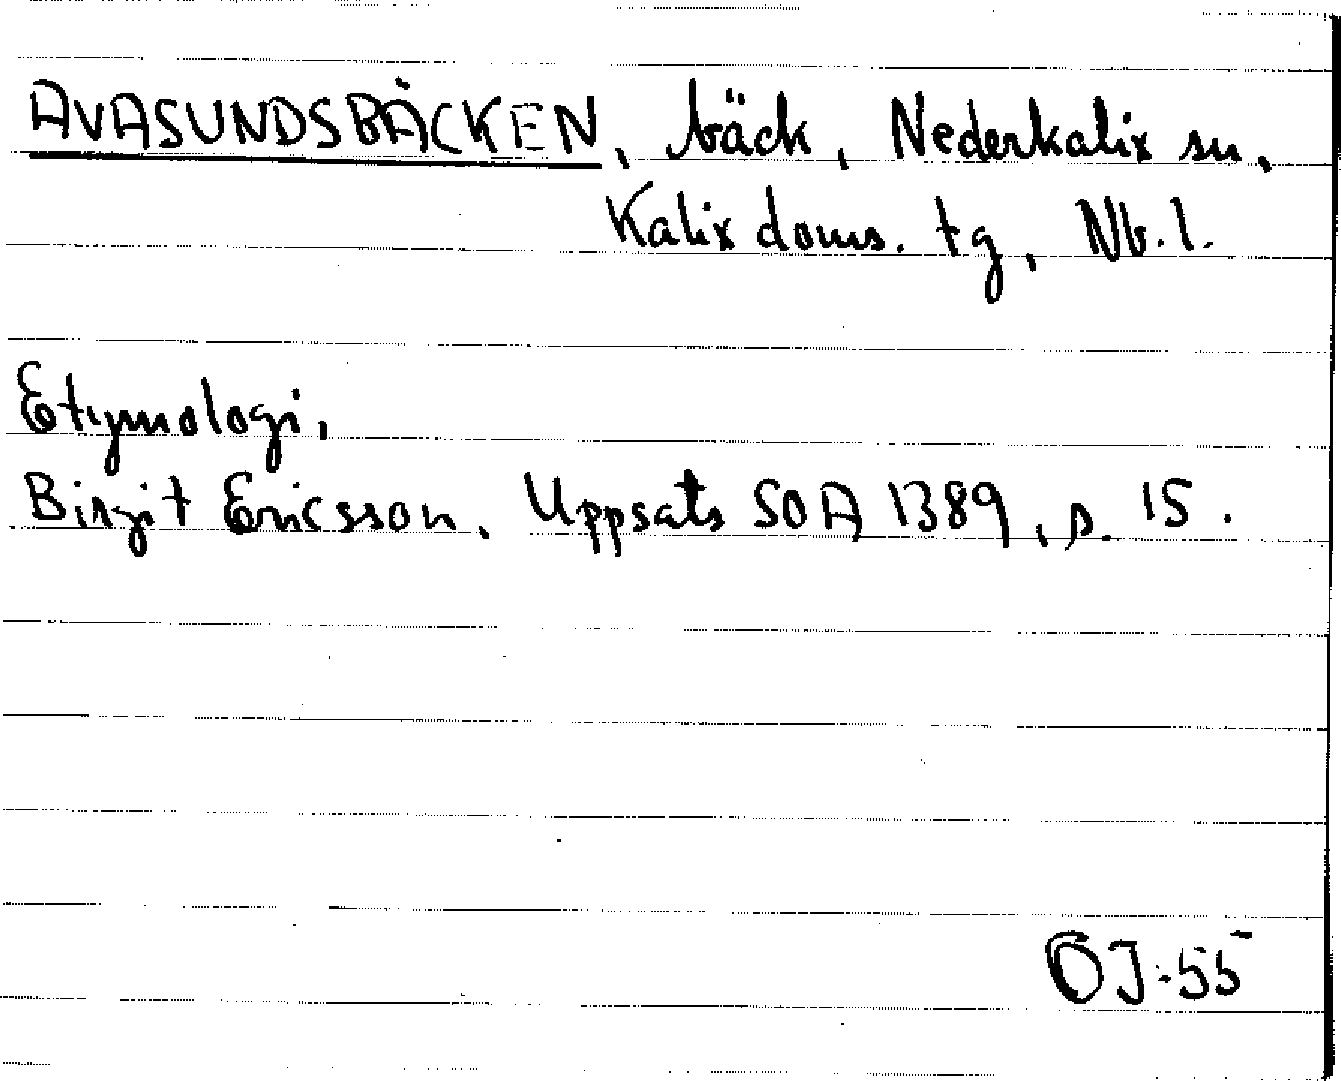 AVASUNDSBÄCKEN, bäck, Nederkalix sn,
Kalix doms. tg, Nb. l.
Etymologi,
Birgit Ericsson. Uppsats SOA 1389, s. 15.
ÖJ-55